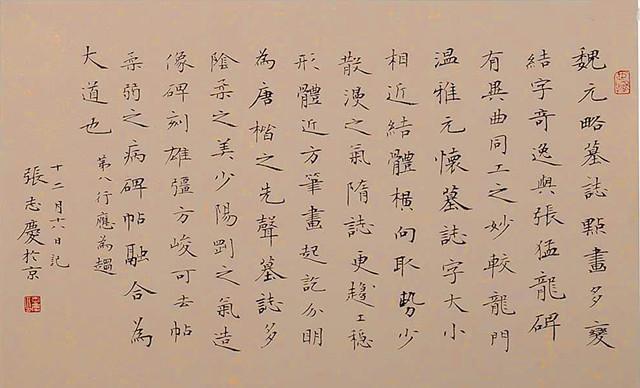 魏元略墓誌點畫多變
結字奇逸與張猛龍碑
有異曲同工之妙較龍門
温雅元懷墓誌字大小
相近結體橫向取勢少
散漫之氣隋誌更工穩
形體近方筆畫起訖分明
為唐楷之先聲墓誌多
陰柔之美少陽剛之氣造
像碑刻雄彊方峻可去帖
柔弱之病碑帖融合為
大道也
第八行應為趨
十二月六日記
張志慶於京